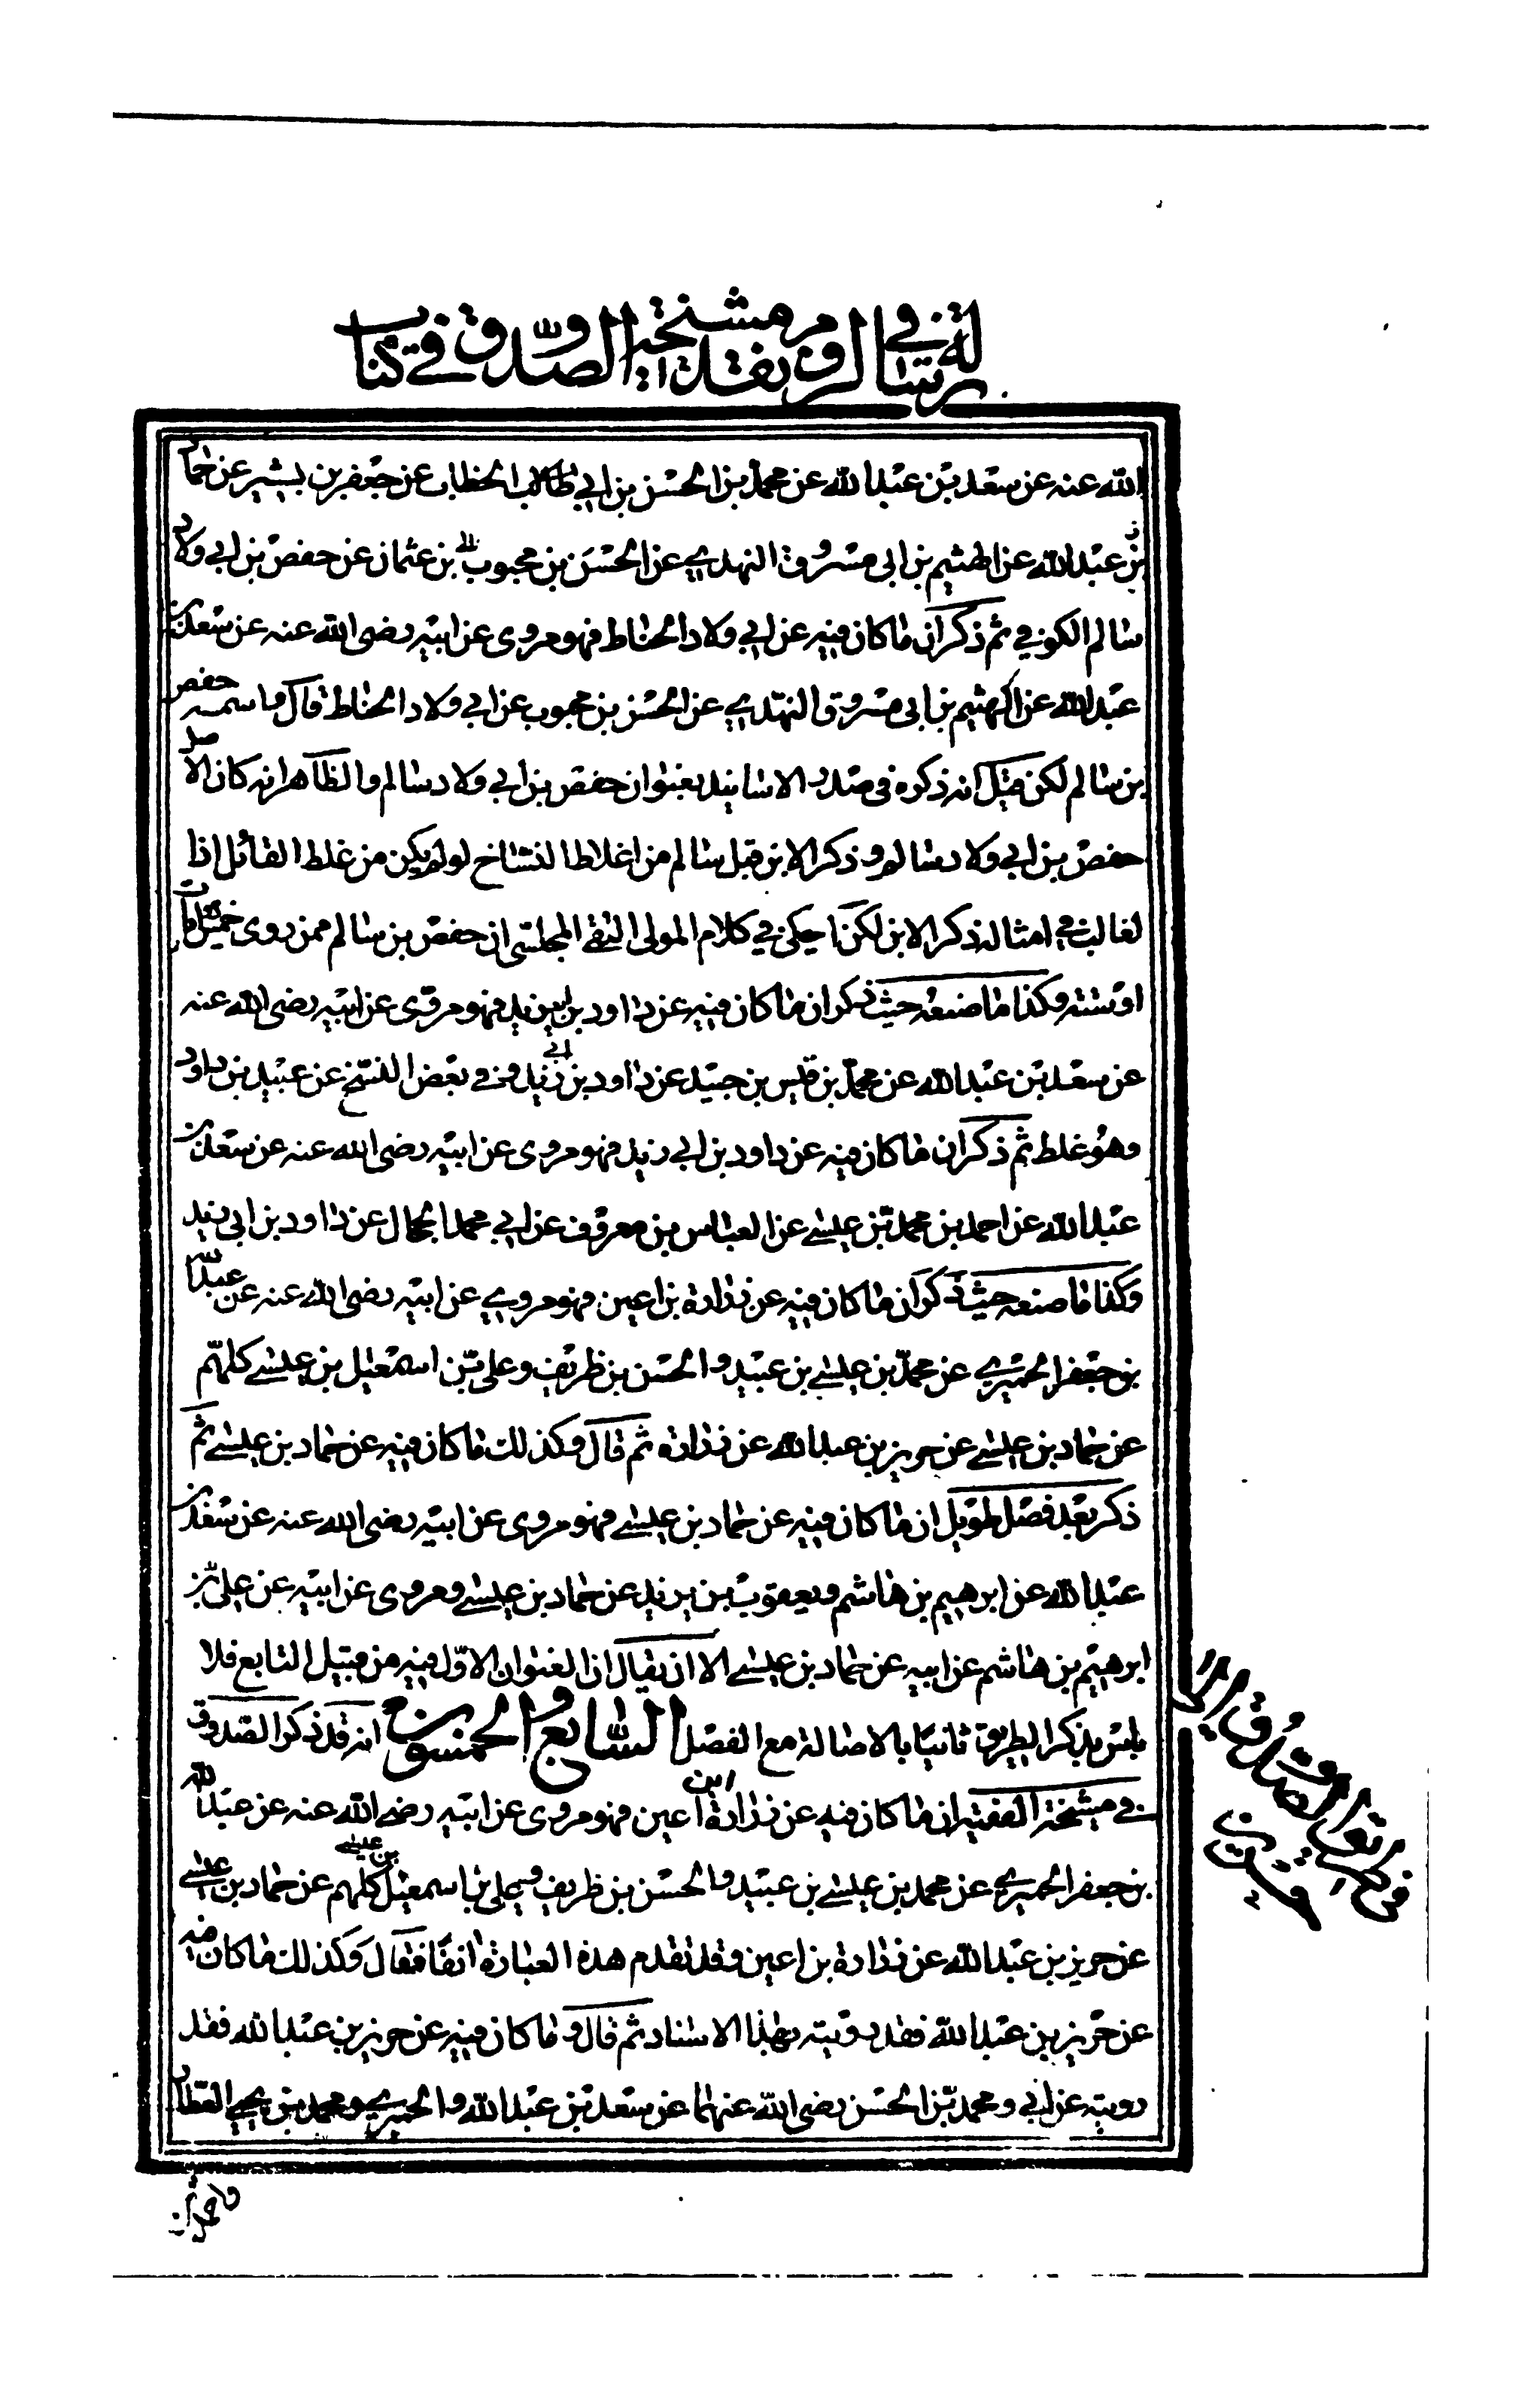 رسالة في لزوم نقد مشيخة الصدوق في كتاب
الله عنه عن سعد بن عبد الله عن محمد بن الحسن بن ابي الخطاب عن جعفر بن بشير عن حماد
بن عثمان عن حفص بن ابي ولاد
بن عبد الله عن الهيثم بن ابي مسروق النهدي عن الحسن بن محبوب
سالم الكوفي ثم ذكر ان ما كان فيه عن ابي ولاد الحناط فهو مروى عن ابيه رضى الله عنه عن سعد بن
عبد الله عن الهيثم بن ابي مسروق النهدي عن الحسن بن محبوب عن ابي ولاد الحناط قال واسمه حفص
بن سالم لكن قيل انه ذكره في صدر الاسانيد بعنوان حفص بن ابي ولاد سالم والظاهر انه كان الاصل
حفص بن ابي ولاد سالم وذكر الابن قبل سالم من اغلاط النساخ لو لم يكن من غلط القائل اذا
لغالب في امثاله ذكر الابن لكن حكى في كلام المولى التقي المجلسي ان حفص بن سالم ممن روى
او سنته وكذا ما صنعه حيث ذكر ان ما كان فيه عن داود بن ابي زيد فهو مروى عن ابيه رضى الله عنه
عن سعد بن عبد الله عن محمد بن قيس بن عن داود بن ابي زيد وفي بعض النسخ عن عبيد بن داود
وهو غلط ثم ذكر ان ما كان فيه عن داود بن ابي زيد فهو مروى عن ابيه رضى الله عنه عن سعد بن
عبد الله عن احمد بن محمد بن عيسى عن العباس بن معروف عن ابي محمد الحجال عن داود بن ابي زيد
وكذا ما صنعه حيث ذكر ان ما كان فيه عن زرارة بن اعين فهو مروي عن ابيه رضى الله عنه عن عبد الله
بن جعفر الحميري عن محمد بن عيسى بن عبيد والحسن بن ظريف وعلى بن اسمعيل بن عيسى كلهم
عن حماد بن عيسى عن حريز بن عبد الله عن زرارة ثم قال وكذلك ما كان فيه عن حماد بن عيسى ثم
ذكر بعد فصل طويل ان ما كان فيه عن حماد بن عيسى فهو مروى عن ابيه رضى الله عنه عن سعد بن
عبد الله عن ابرهيم بن هاشم ويعقوب بن يزيد عن حماد بن عيسى ومروى عن ابيه عن على بن
ابرهيم بن هاشم عن ابيه عن حماد بن عيسى الا ان يقال ان العنوان الاول فيه من قبيل التابع فلا
باس بذكر الطريق ثانيا بالاصالة مع الفصل السابع والخمسون انه قد ذكر الصدوق
في مشيخة الفقيه ان ما كان فيه عن زرارة ابن اعين فهو مروى عن ابيه رضى الله عنه عن عبد الله
بن جعفر الحميري عن محمد بن عيسى بن عبيد والحسن بن ظريف وعلى بن اسمعيل بن عيسى كلهم عن حماد بن عيسى
عن حريز بن عبد الله عن زرارة بن اعين وقد تقدم هذه العبارة انفا فقال وكذلك ما كان فيه
عن حريز بن عبد الله فقد رويته بهذا الاسناد ثم قال وما كان فيه عن حريز بن عبد الله فقد
رويته عن ابي ومحمد بن الحسن رضى الله عنهما عن سعد بن عبد الله والحميري ومحمد بن يحيى العطار